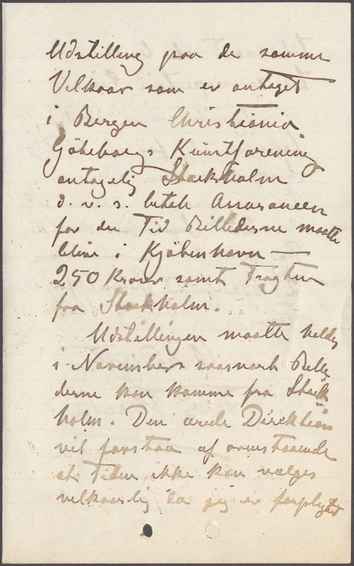 Udstilling paa de samme
Vilkaar som er antaget
i Bergen Christiania
Göteborgs Kunstforening
antagelig Stockholm
d. v. s. betale Assurancen
for den Tid Billederne maatte
blive i Kjöbenhavn —
250 Kroner samt Fragten
fra Stockholm.
Udstillingen maatte helst
i November saasnart Bille
derne kan komme fra Stock
holm. Den ærede Direktion
vil forstaa af ovenstaaende
at Tiden ikke kan vælges
vilkaarlig da jeg er forpligtet